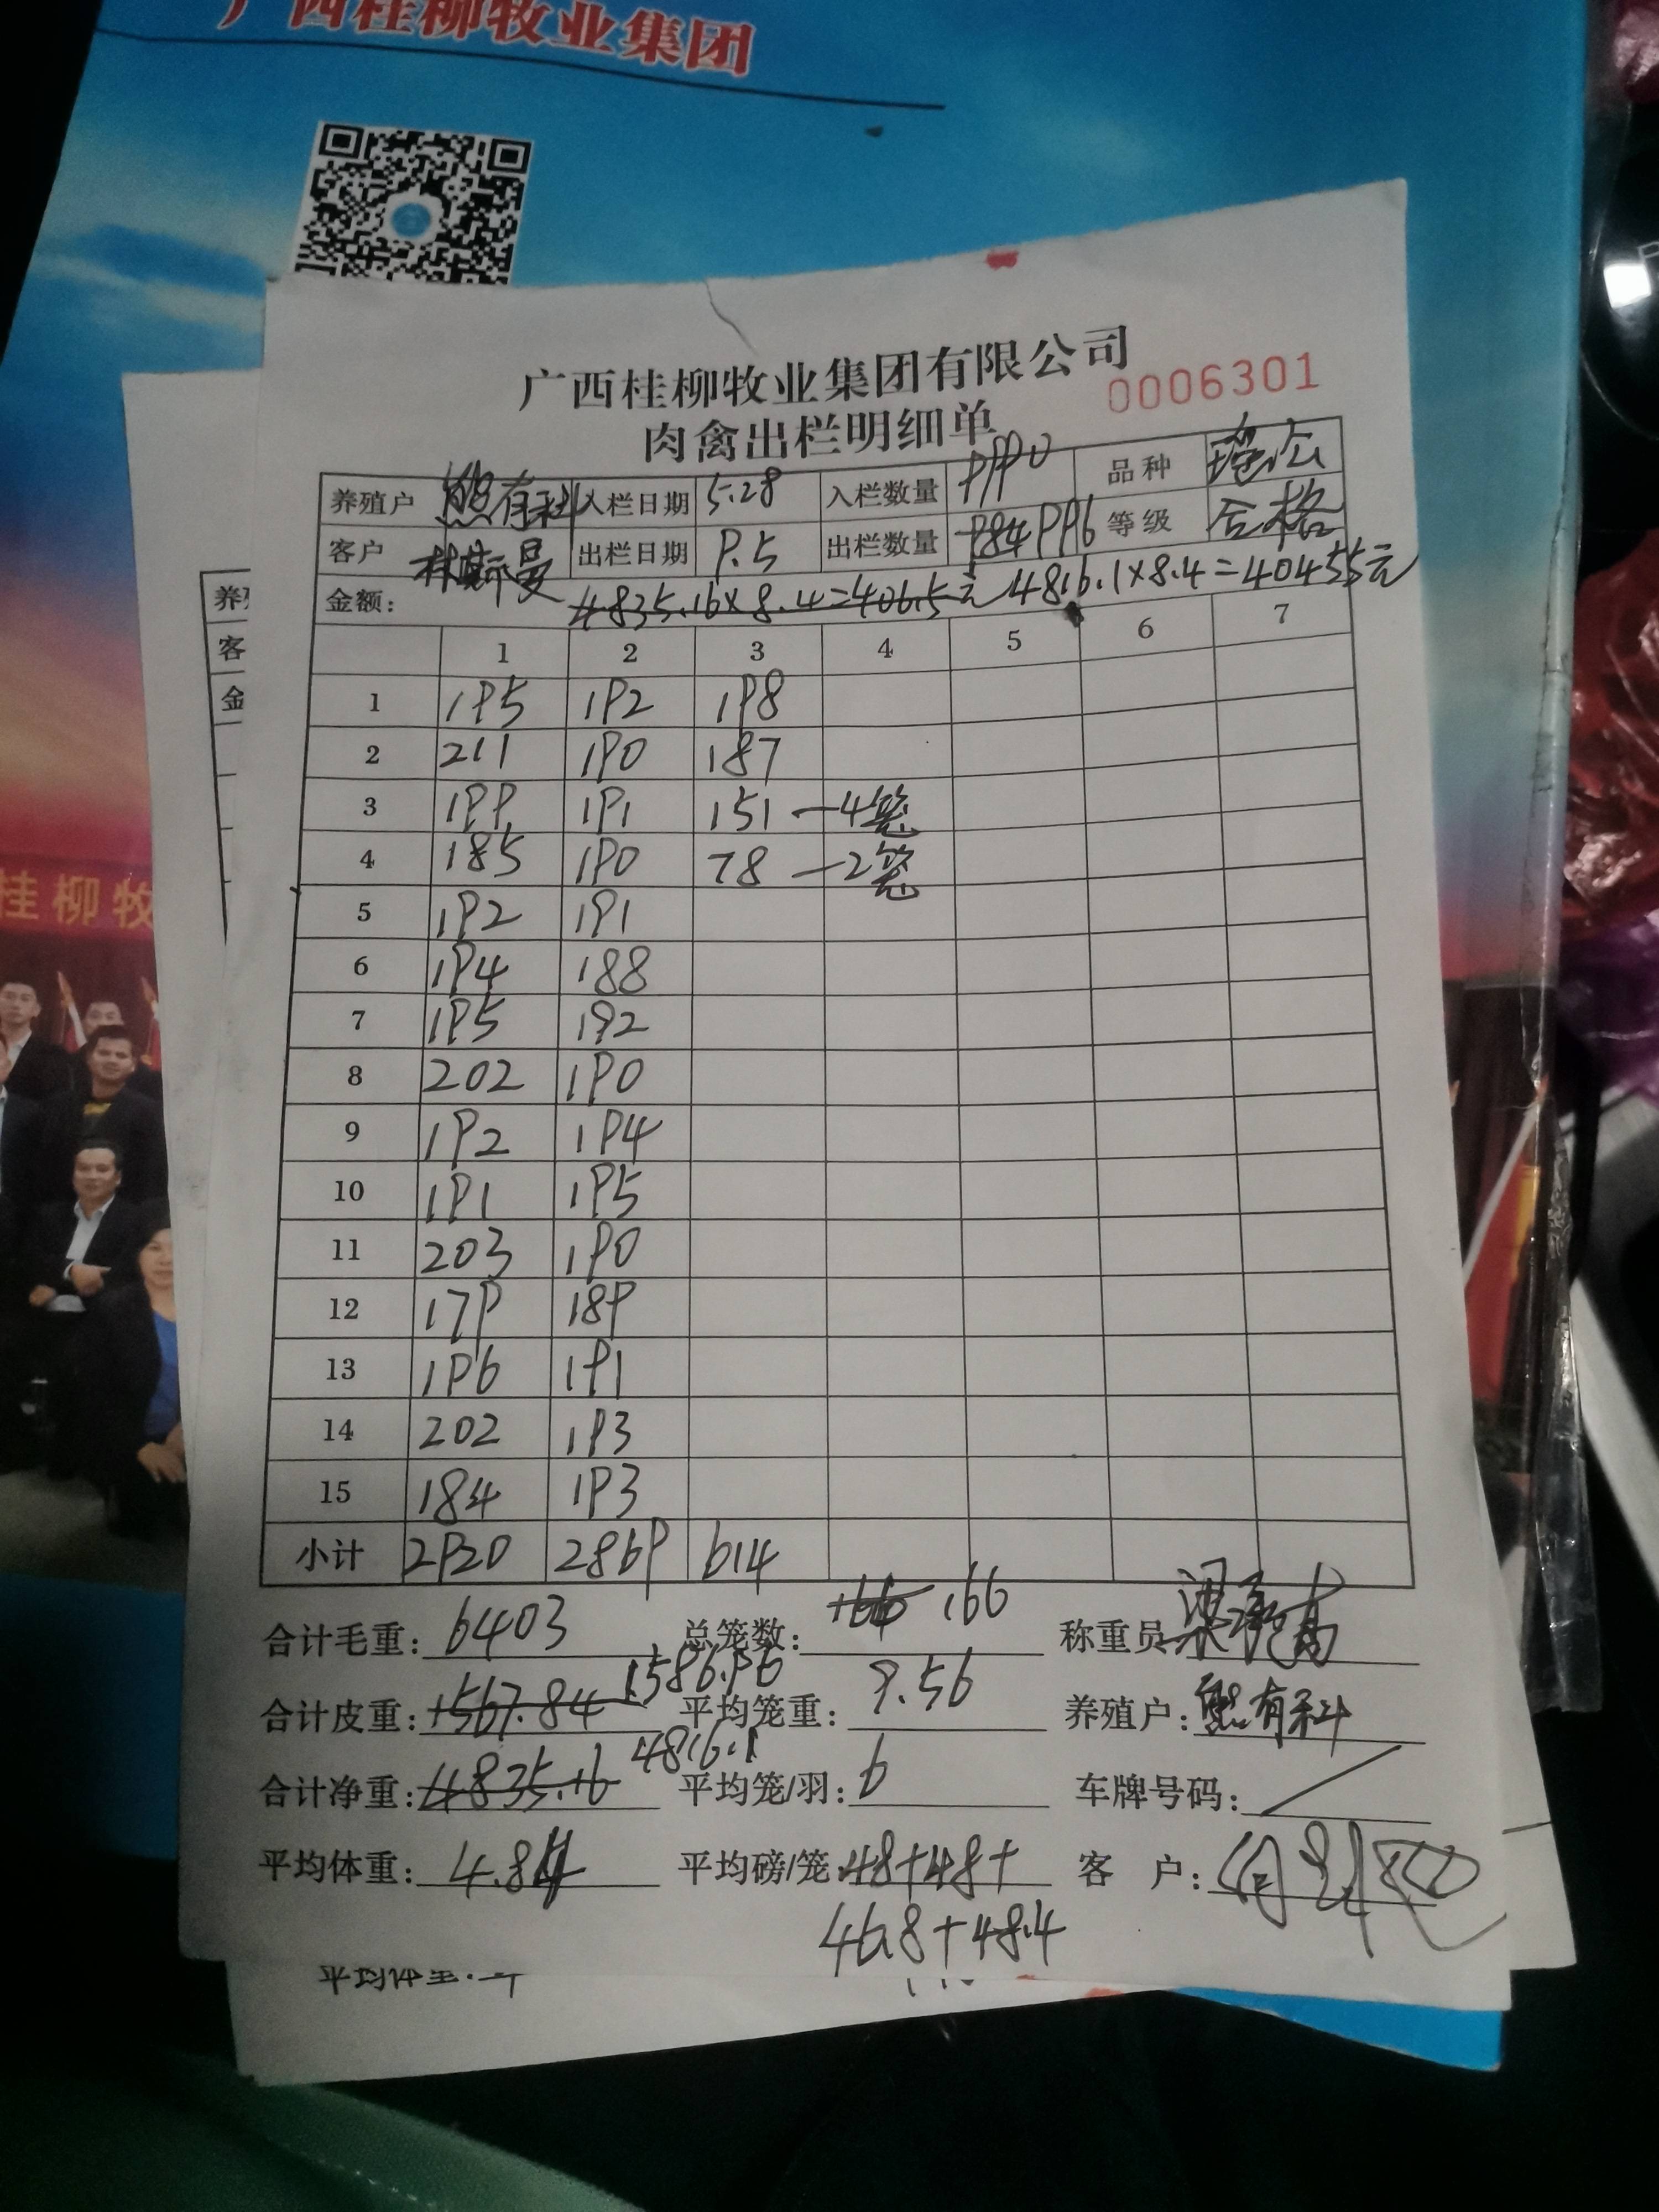 广西桂柳牧业集团
广西桂柳牧业集团有限公司
0006301
肉禽出栏明细单
养殖户 熊有科 入栏日期 5.28 入栏数量 9990 品种
客户 出栏日期 9.5 出栏数量 984 996 等级 合格
金额: 4835.16×8.4=406.5元 4816.1×8.4=40455元
1 2 3 4 5 6 7
1 195 192 198
2 211 190 187
3 199 191 151 —4笼
4 185 190 78 —2笼
5 192 191
6 194 188
7 195 192
8 202 190
9 192 194
10 191 195
11 203 190
12 179 189
13 196 191
14 202 193
15 184 193
小计 2920 2869 614
合计毛重: 6403 总笼数: 166 166 称重员
合计皮重: 1567.84 1586.96 平均笼重: 9.56 养殖户: 熊有科
合计净重: 4835.16 4816.1 平均笼/羽: 6 车牌号码: /
平均体重: 4.84 平均磅/笼: 48+48+ 客 户:
46.8+48.4
养
客
金
桂柳牧
平均体重: